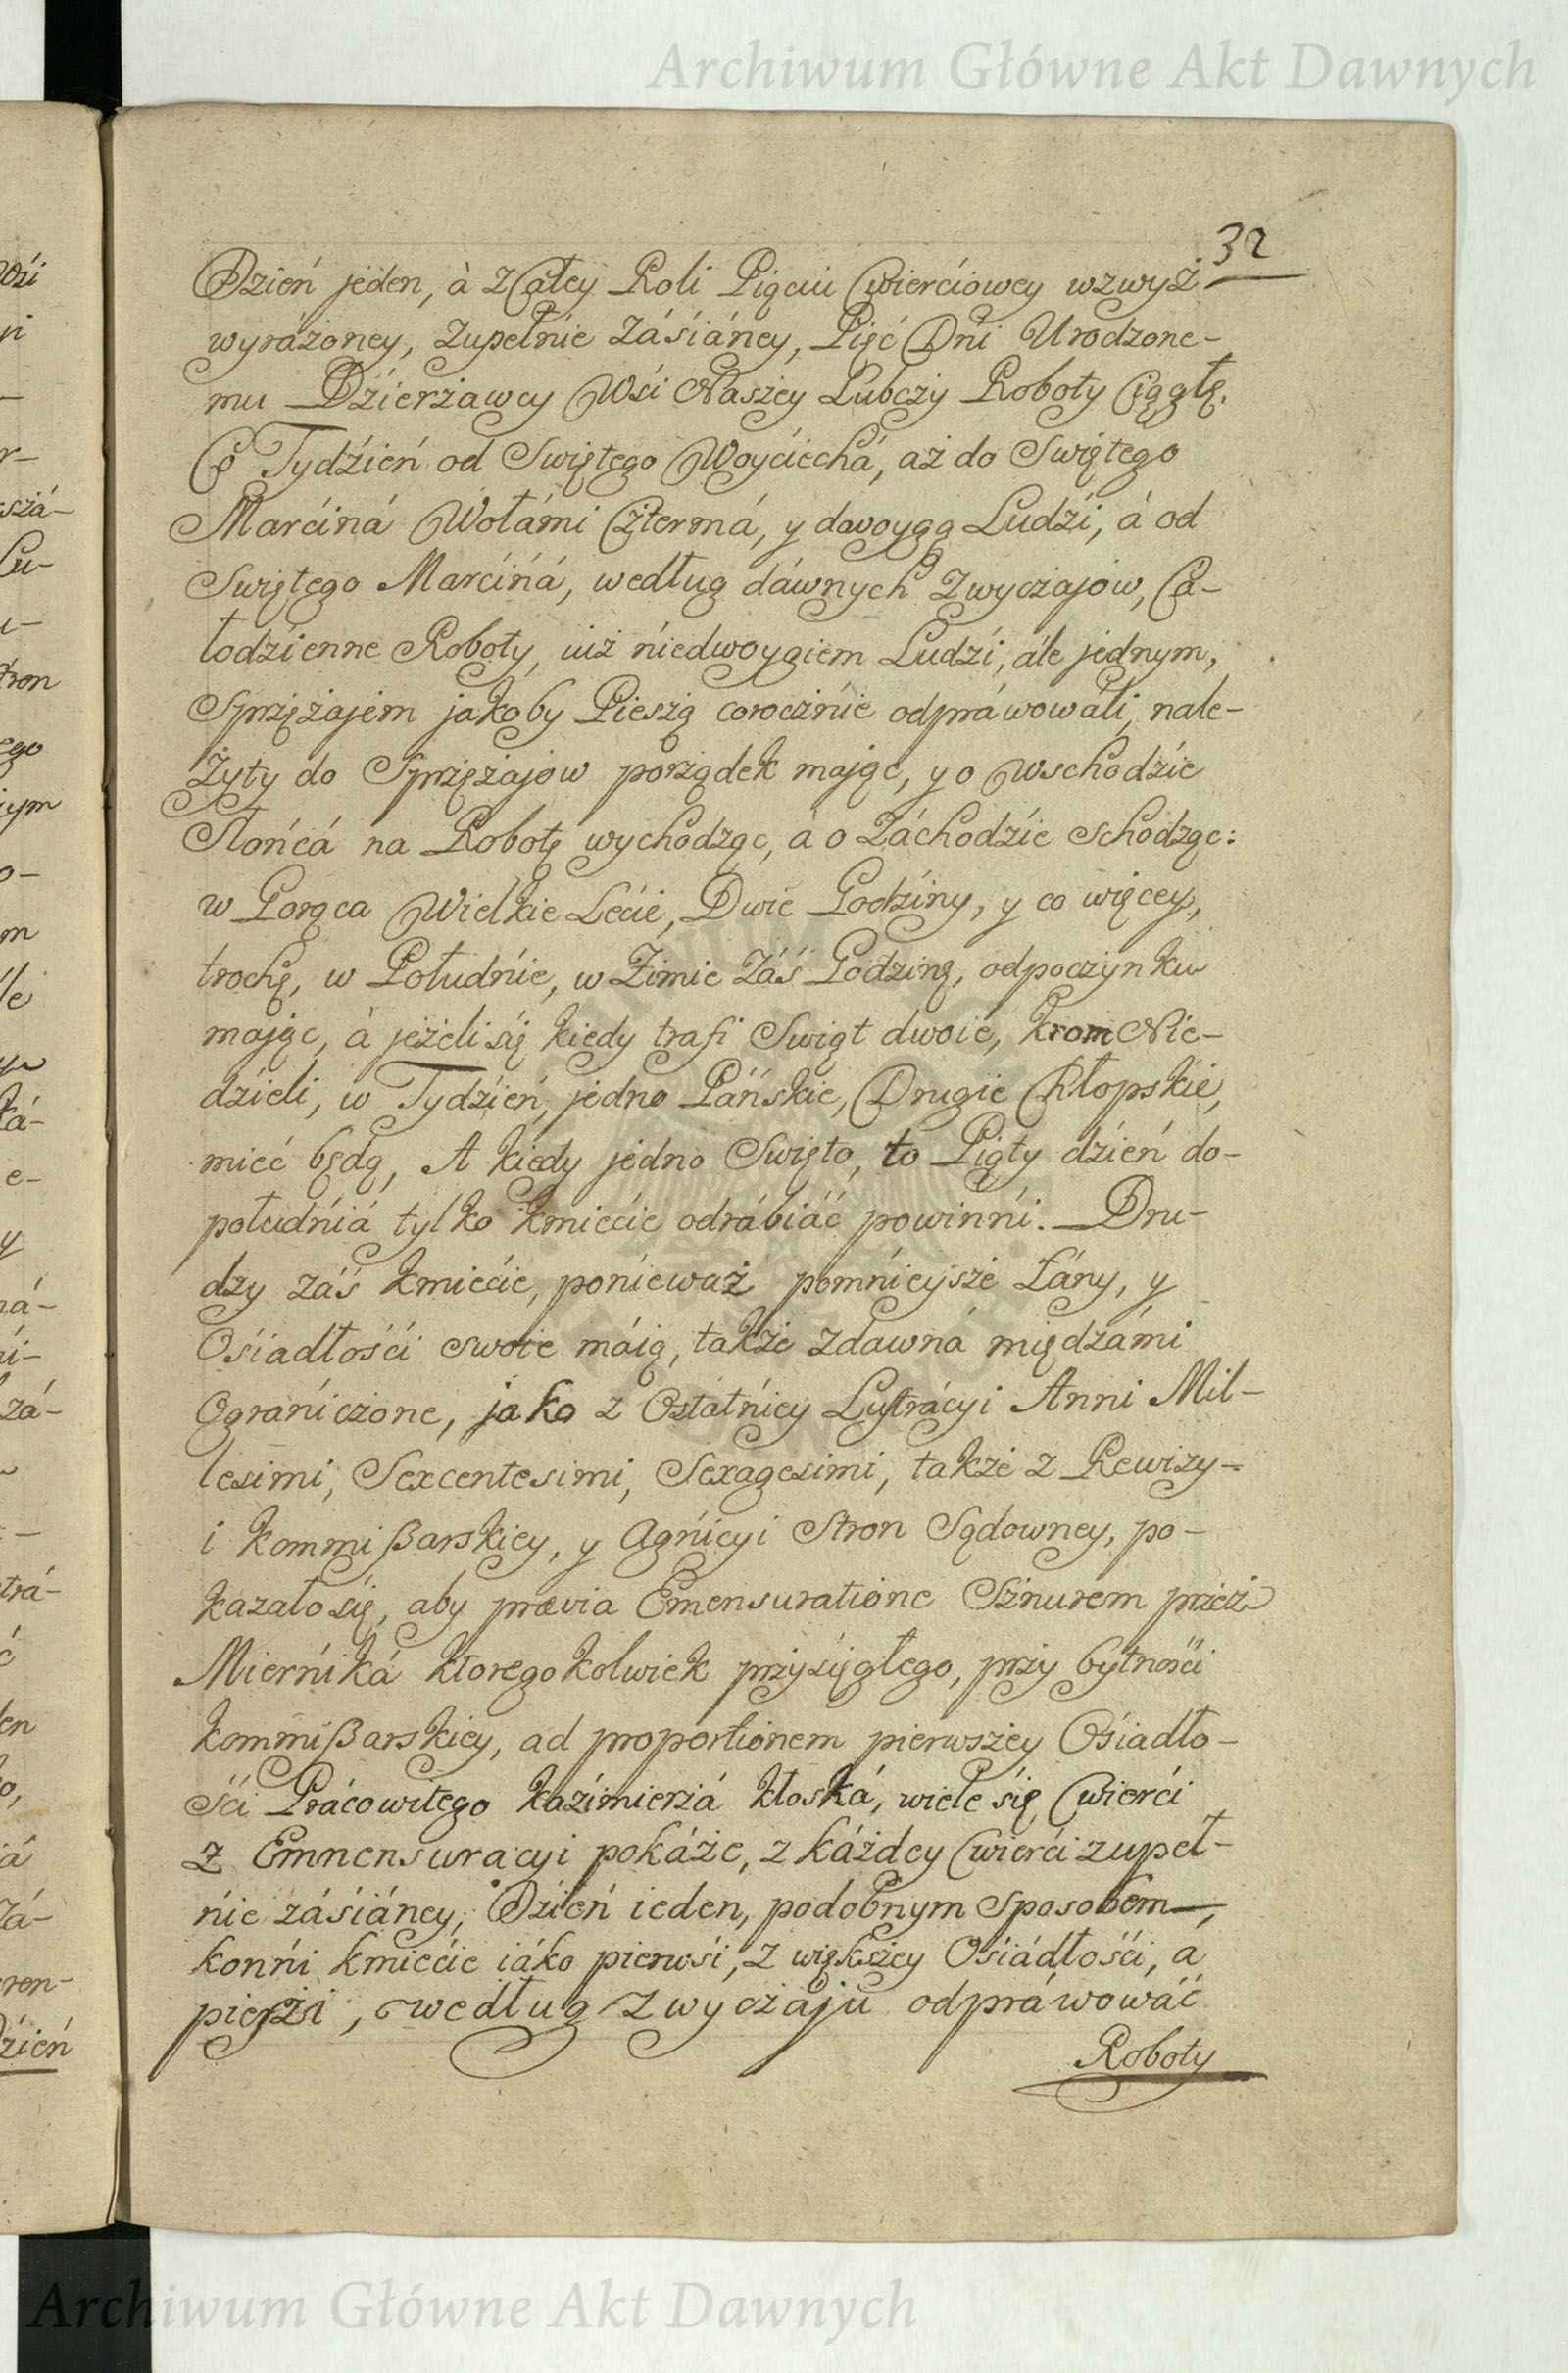 Archiwum Główne Akt Dawnych
32
Dzień jeden, à z Całey Roli Pięciu Cwierciowey wzwyż
wyráżoney, zupełnie zásiáney, Pięć Dni Urodzone-
mu Dzierżawcy Wsi Naszey Lubczy Roboty Ciągłę.
Co Tydzień od Swiętego Woyciechá, aż do Swiętego
Marciná Wołámi Czterma, y dwoygą Ludzi, á od
Swiętego Marciná, według dáwnych Zwyczajow, Ca-
łodzienne Roboty, iuż niedwoygiem Ludzi, ále jednym,
Sprzężajem jakoby Pieszą corocznie odpráwowáli, nale-
żyty do Sprzężajow porządek mając, y o Wschodzie
Słońcá na Robotę wychodząc, à o Záchodzie schodząc:
w Gorąca Wielkie Lecie, Dwie Godziny, y co więcey,
trochę, w Południe, w Zimie Záś Godzinę, odpoczynku
mając, à jeżeli się kiedy trafi Swiąt dwoie, krom Nie-
dzieli, w Tydzień, jedno Páńskie, Drugie Chłopskie,
mieć będą, A kiedy jedno Swięto, to Piąty dzień do-
południá tylko kmiecie odrábiáć powinni. Dru-
dzy záś kmiecie, ponieważ pomnieysze Łány, y
Osiadłości swoie máią, także zdawná międzámi
Ograniczone, jako z Ostatniey Lustrácyi Anni Mil-
lesimi, Sexcentesimi, Sexagesimi, także z Rewizy-
i kommißarskiey, y Agnicyi Stron Sądowney, po-
kazało się, aby prævia Emensuratione Sznurem przez
Mierniká ktoregokolwiek przysięgłego, przy bytności
kommißarskiey, ad proportionem pierwszey Osiadło-
ści Prácowitego kazimierzá kłoská, wiele się Cwierci
z Emnensuracyi pokáże, z káżdey Cwierci zupeł-
nie zásiáney, Dzień ieden, podobnym Sposobem,
konni kmiecie iáko pierwsi, z większey Osiádłości, a
pierszi, według zwyczáju odpráwowáć
Roboty
Archiwum Główne Akt Dawnych